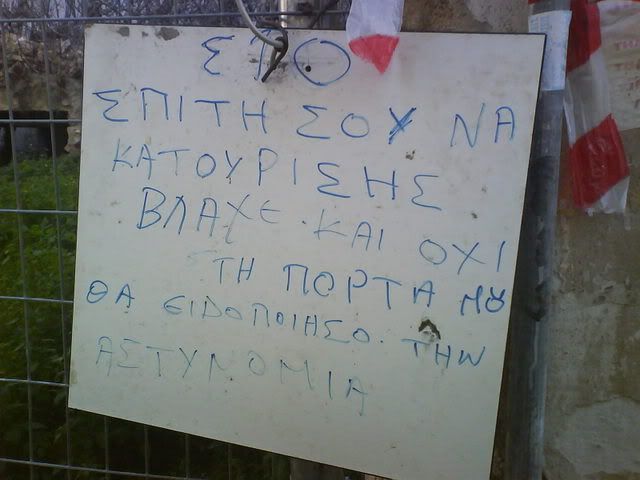 ΣΤΟ
ΣΠΙΤΗ ΣΟΥ ΝΑ
ΚΑΤΟΥΡΙΣΗΣ
ΒΛΑΧΕ. ΚΑΙ ΟΧΙ
ΤΗ ΠΟΡΤΑ ΜΟΥ
ΘΑ ΕΙΔΟΠΟΙΗΣΟ. ΤΗΝ
ΑΣΤΥΝΟΜΙΑ